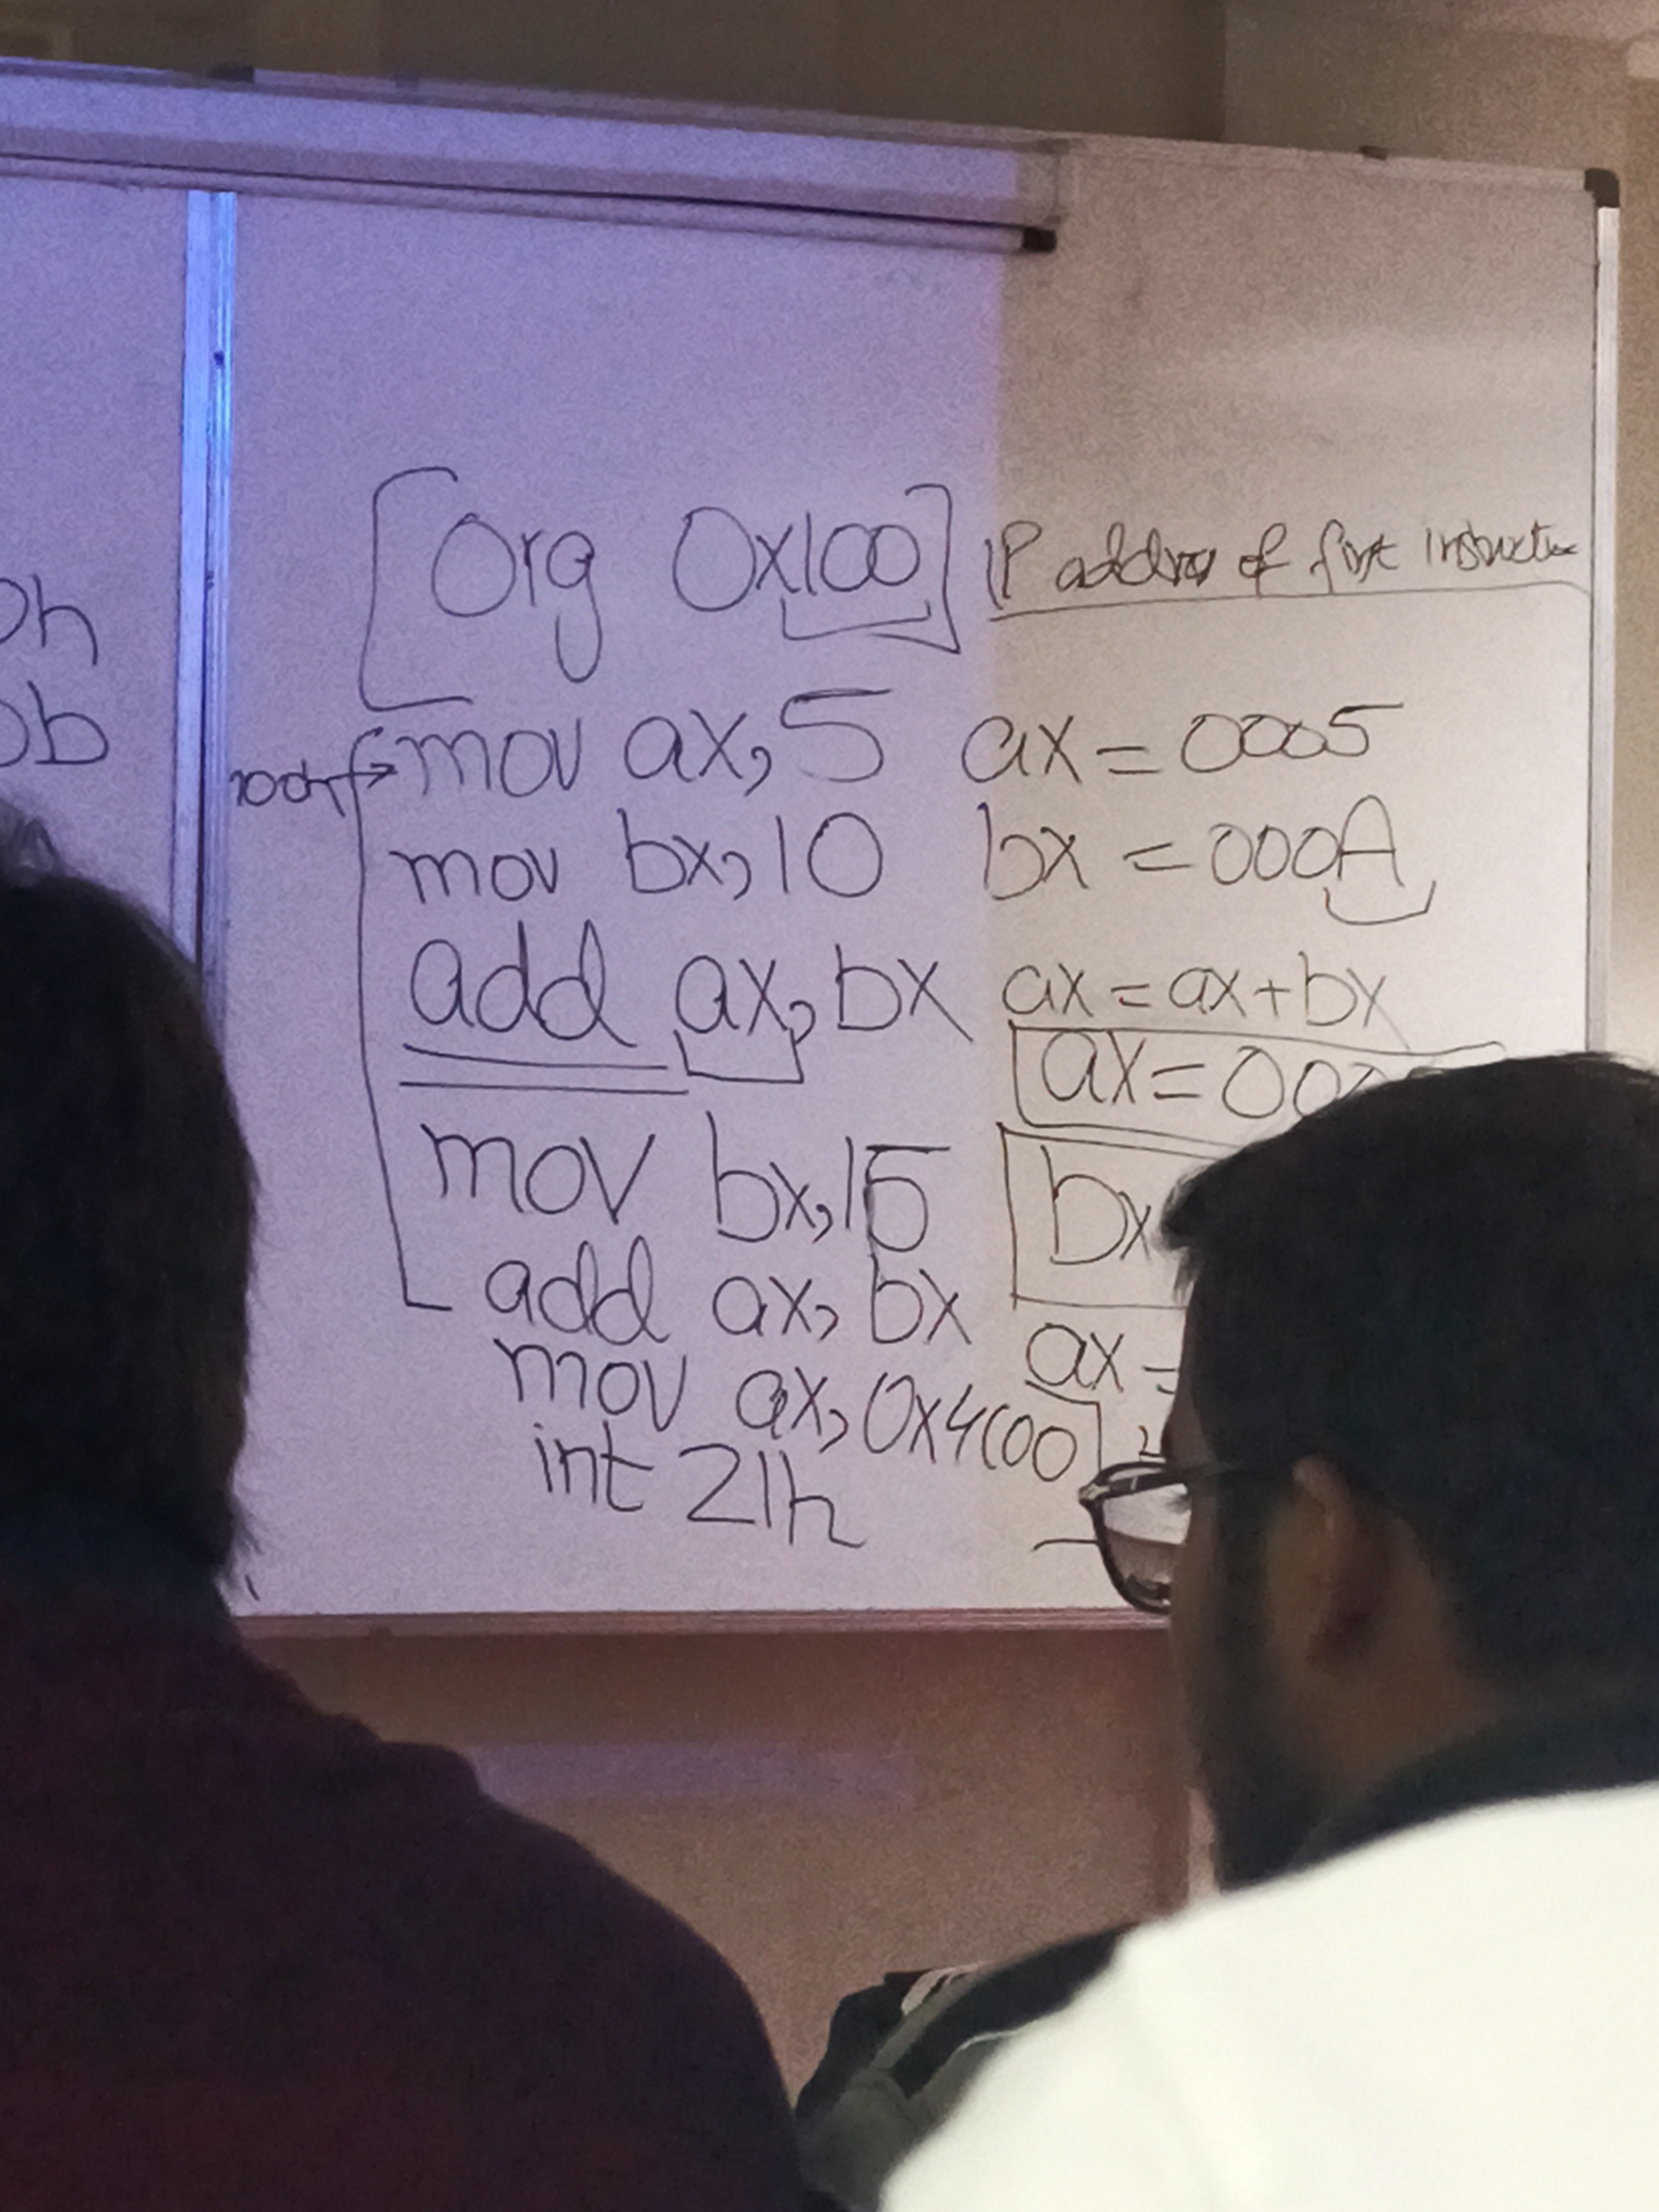 [Org 0x100] IP address of first instruction
0h
0b
100h → mov ax, 5 ax = 0005
mov bx, 10 bx = 000A
add ax, bx ax = ax + bx
ax = 00
mov bx, 15 bx
add ax, bx ax =
mov ax, 0x4C00
int 21h